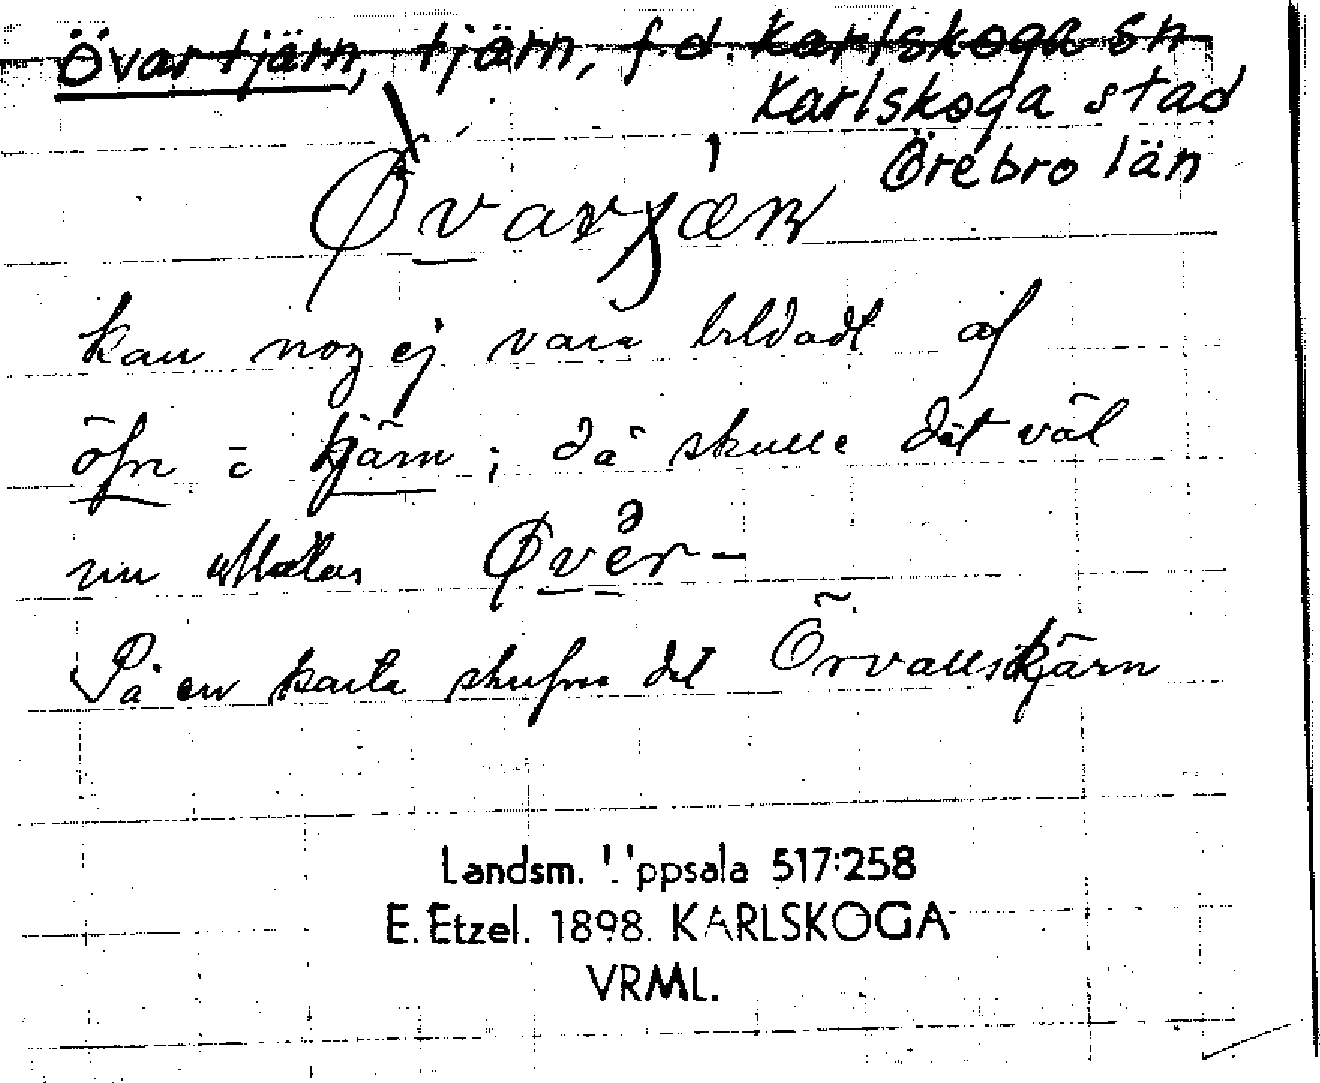 Övartjärn, tjärn, f.d. Karlskoga sn
Karlskoga stad
Örebro län
kan nog ej vara bildadt af
öfre = tjärn; då skulle det väl
nu uttalas Øvər-
På en karta skrifves det Örvallstjärn
Landsm. Uppsala 517:258
E. Etzel. 1898. KARLSKOGA
VRML.